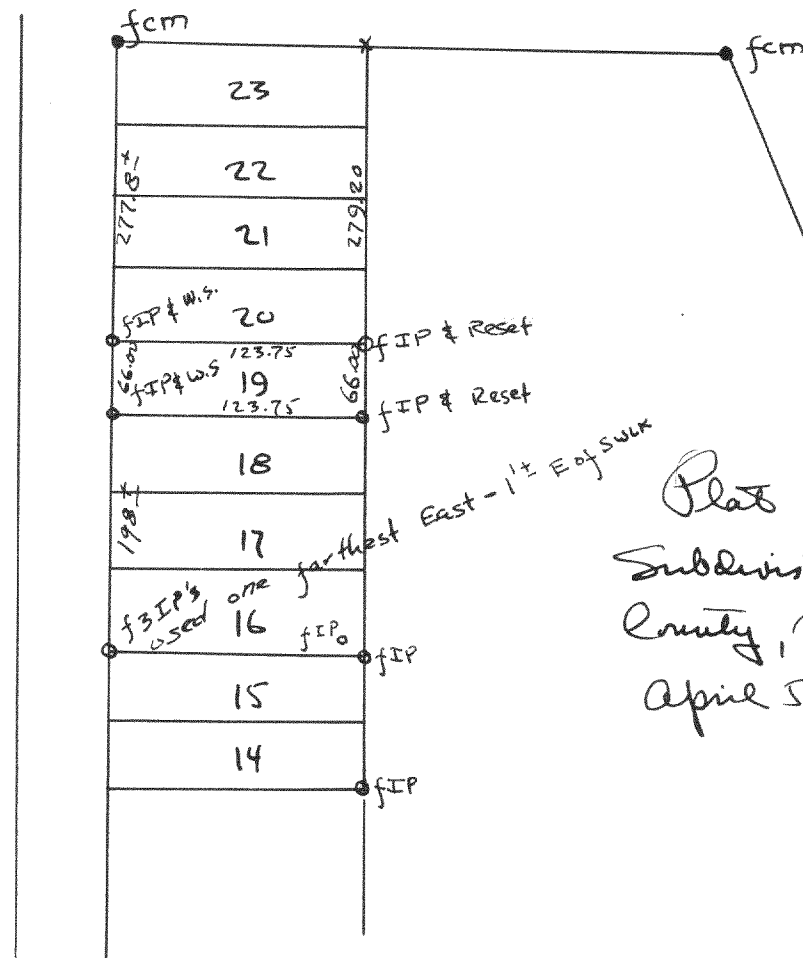 fcm
fcm
23
22
277.8±
279.20
21
fIP & W.S.
20
fIP & Reset
123.75
66.00
fIP & W.S
19
66.00
123.75
fIP & Reset
18
198±
17
f 3 IP's
used one farthest East - 1'± E of SWLK
16
fIP
fIP
15
14
fIP
Plat
Subdivis
County,
April 5